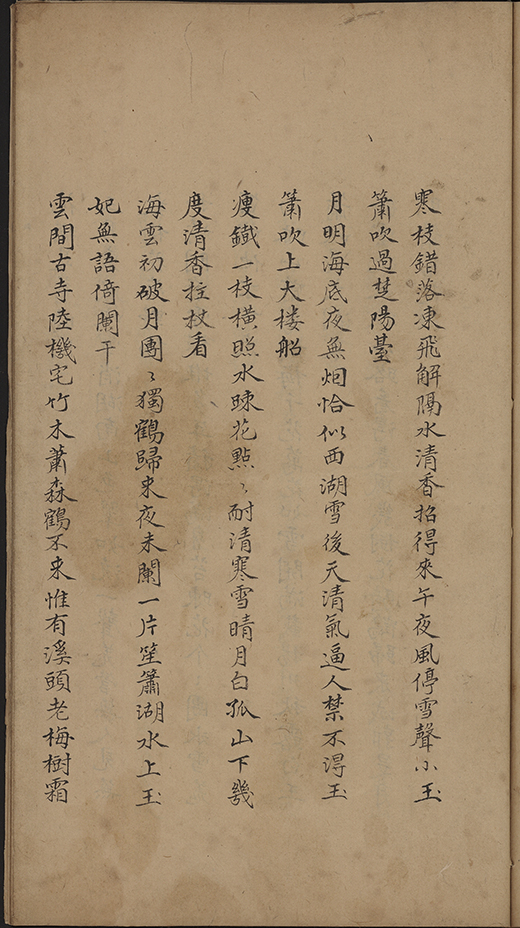 寒枝錯落凍飛解隔水清香招得來午夜風停雪聲小玉
簫吹過楚陽臺
月明海底夜無烟恰似西湖雪後天清氣逼人禁不得玉
簫吹上大楼船
瘦鐡一枝橫照水踈花點〻耐清寒雪晴月白孤山下幾
度清香拄杖看
海雲初破月團〻獨鶴歸來夜未闌一片笙簫湖水上玉
妃無語倚闌干
雲間古寺陸機宅竹木蕭森鶴不来惟有溪頭老梅樹霜